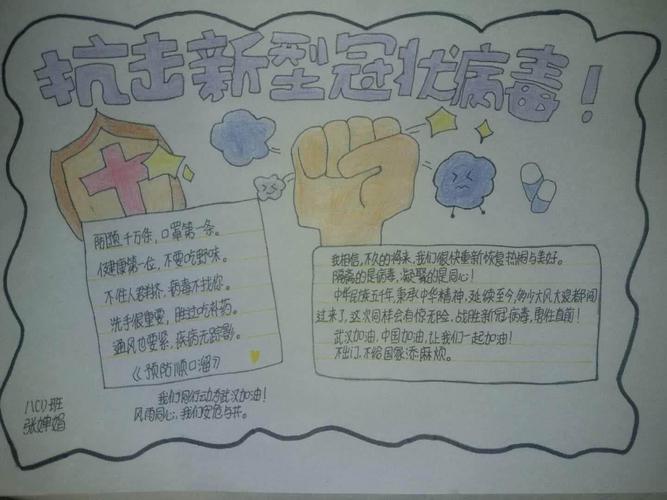 抗击新型冠状病毒！
防疫千万条，口罩第一条。
健康第一位，不要吃野味。
不往人群挤，病毒不找你。
洗手很重要，胜过吃补药。
通风也要紧，疾病无踪影。
《预防顺口溜》
我们同行动为武汉加油！
风雨同心，我们安危与共。
我相信，不久的将来，我们很快重新恢复热闹与美好。
隔离的是病毒，凝聚的是同心！
中华民族五千年，秉承中华精神，延续至今，多少大风大浪都闯
过来了，这次同样会有惊无险，战胜新冠病毒，勇往直前！
武汉加油，中国加油，让我们一起加油！
不出门，不给国家添麻烦。
八(1)班
张婵娟